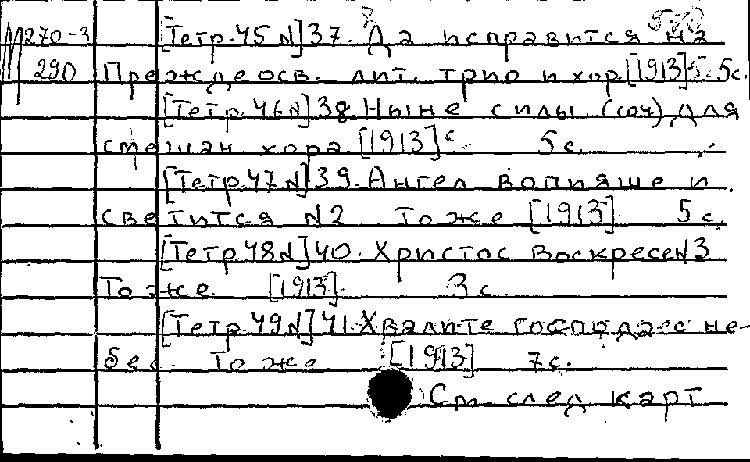 M270-3 [Тетр.45 N]37. Да исправится на
290 Преждеосв. лит. трио и хор [1913] 5с.
[Тетр.46 N]38. Ныне силы (соч) для
смешан хора [1913] 5с.
[Тетр.47 N]39. Ангел вопияше и
светится N2 То же [1913] 5с.
[Тетр.48 N]40. Христос Воскресе N3
То же [1913] 3с
[Тетр.49 N]41. Хвалите господа с не-
бес То же [1913] 7с.
См след карт